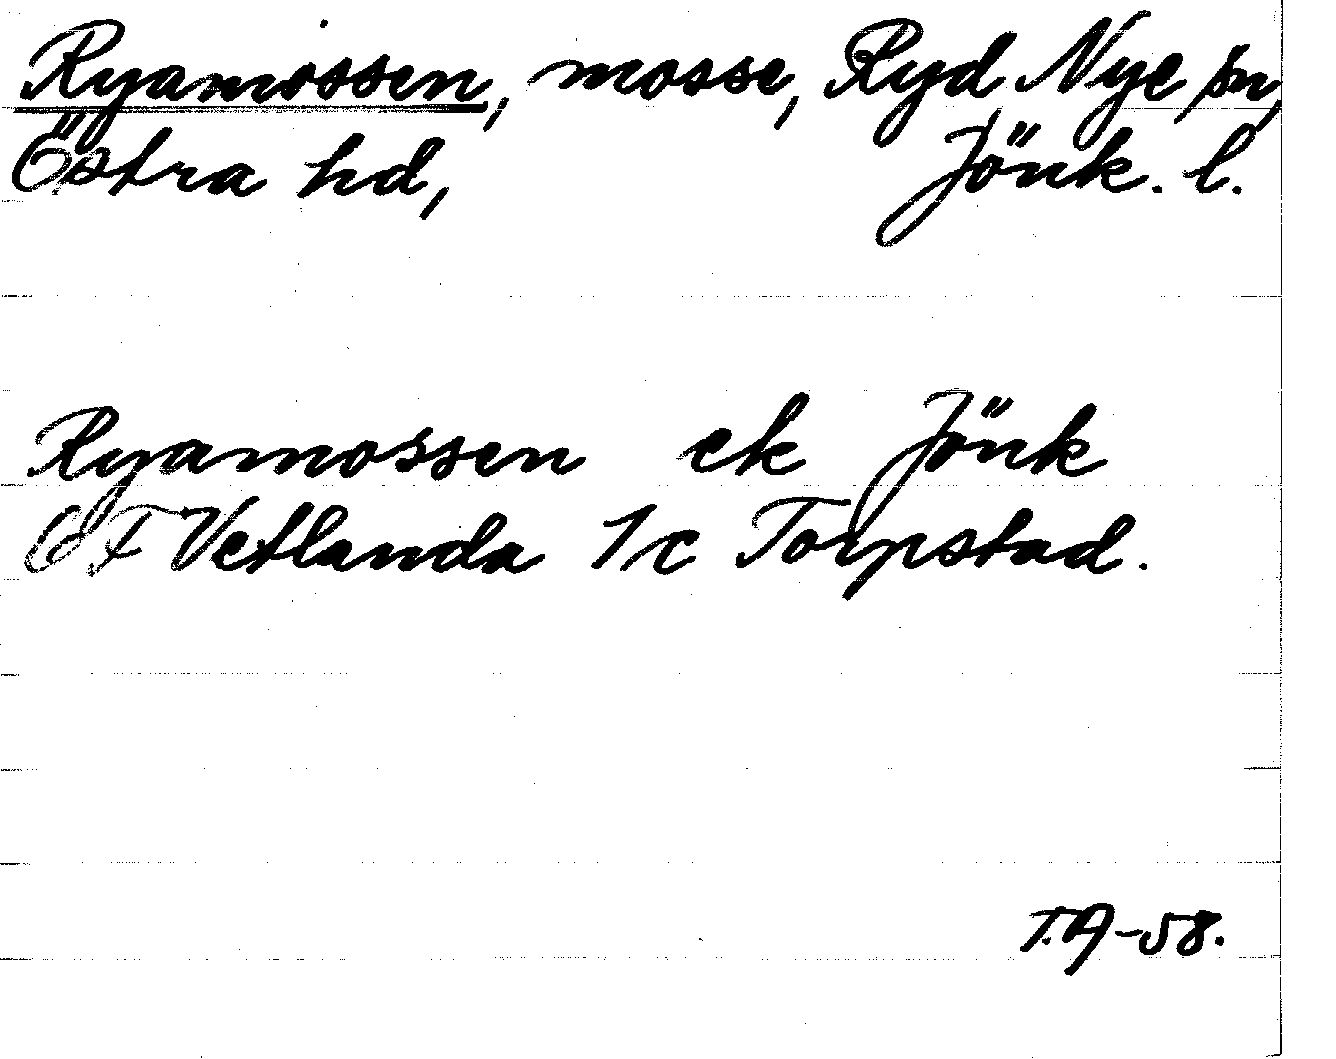 Ryamossen, mosse, Ryd Nye sn,
Östra hd, Jönk. l.
Ryamossen ek Jönk
6F Vetlanda 1c Torpstad.
T.A-58.